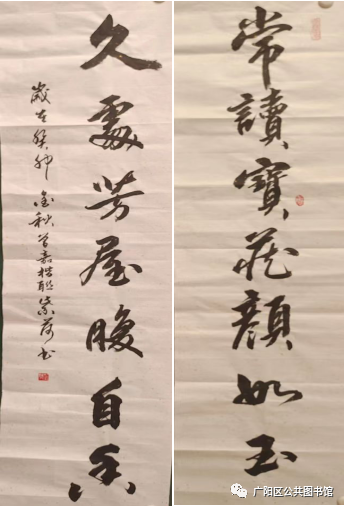 常讀寶藏顏如玉
久處芳屋腹自香
歲在癸卯金秋
广阳区公共图书馆